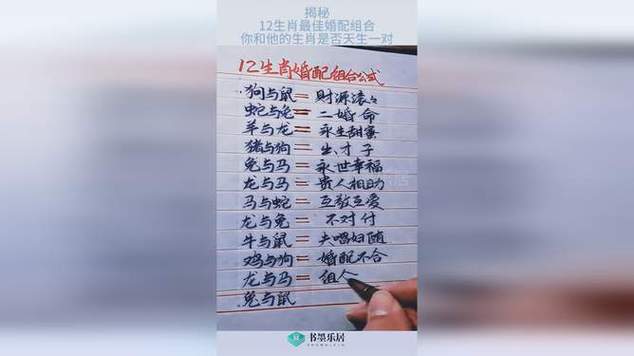 揭秘
12生肖最佳婚配组合
你和他的生肖是否天生一对
12生肖婚配组合公式
狗与鼠=财源滚々
蛇与兔=二婚命
羊与龙=永生甜蜜
猪与狗=出才子
兔与马=永世幸福
龙与马=贵人相助
马与蛇=互敬互爱
龙与兔=不对付
牛与鼠=夫唱妇随
鸡与狗=婚配不合
龙与马=组人
兔与鼠
书墨乐居